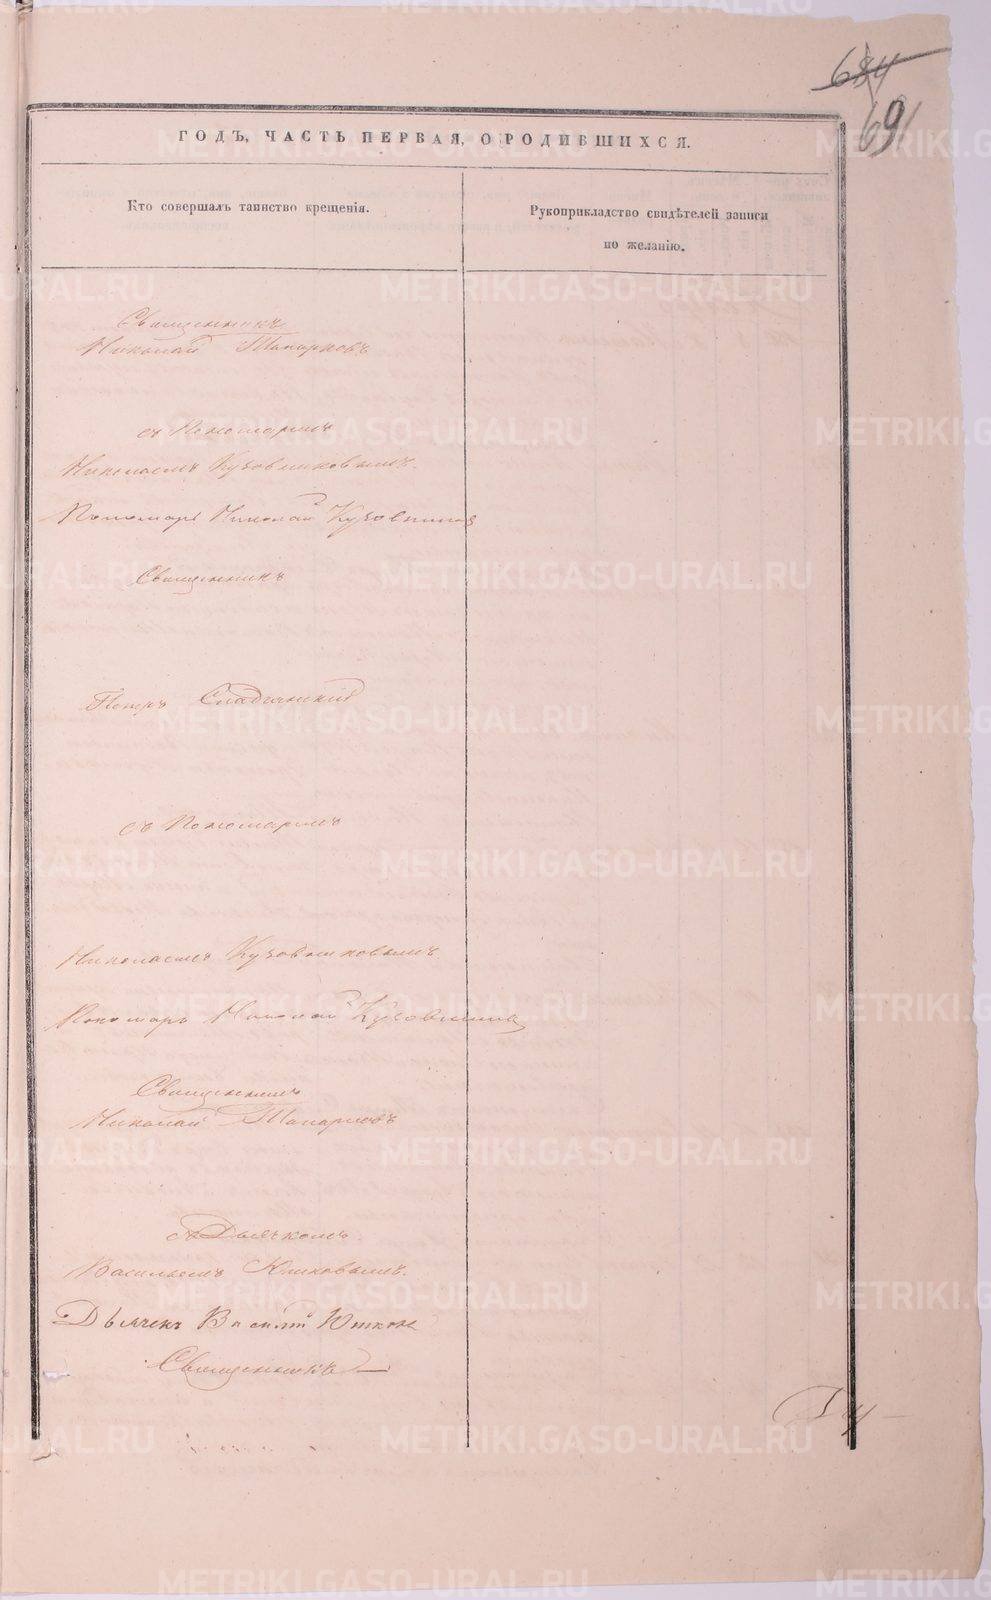 684
69
ГОДЪ, ЧАСТЬ ПЕРВАЯ, О РОДИВШИХСЯ.
Кто совершалъ таинство крещенія.
Рукоприкладство свидѣтелей записи
по желанію.
Священникъ
Николай Топорковъ
съ Пономаремъ
Николаемъ Кузовниковымъ.
Пономарь Николай Кузовников
Священникъ
Петръ
съ Пономаремъ
Николаемъ Кузовниковымъ
Пономарь Николай Кузовников
Священникъ
Николай Топорковъ
съ Дьячкомъ
Васильемъ
Дьячекъ Василій
Священникъ
METRIKI.GASO-URAL.RU